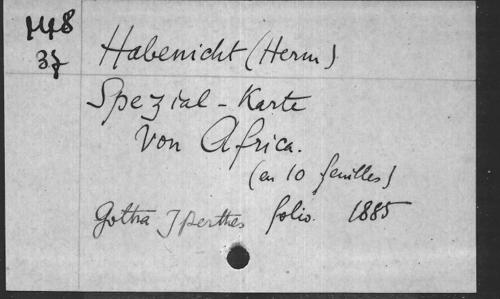 Habenicht (Herm)
Spezial-Karte
von Africa.
(en 10 feuilles)
Gotha J Perthes folio. 1885